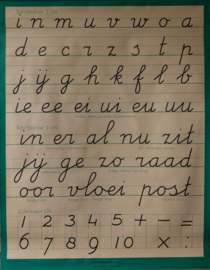 i n m u v w o a
d e c r z s t p
j ij g h k f l b
ie ee ei ui eu uu
in er al nu zit
jij ge zo raad
oor vloei post
1 2 3 4 5 + - =
6 7 8 9 10 x :